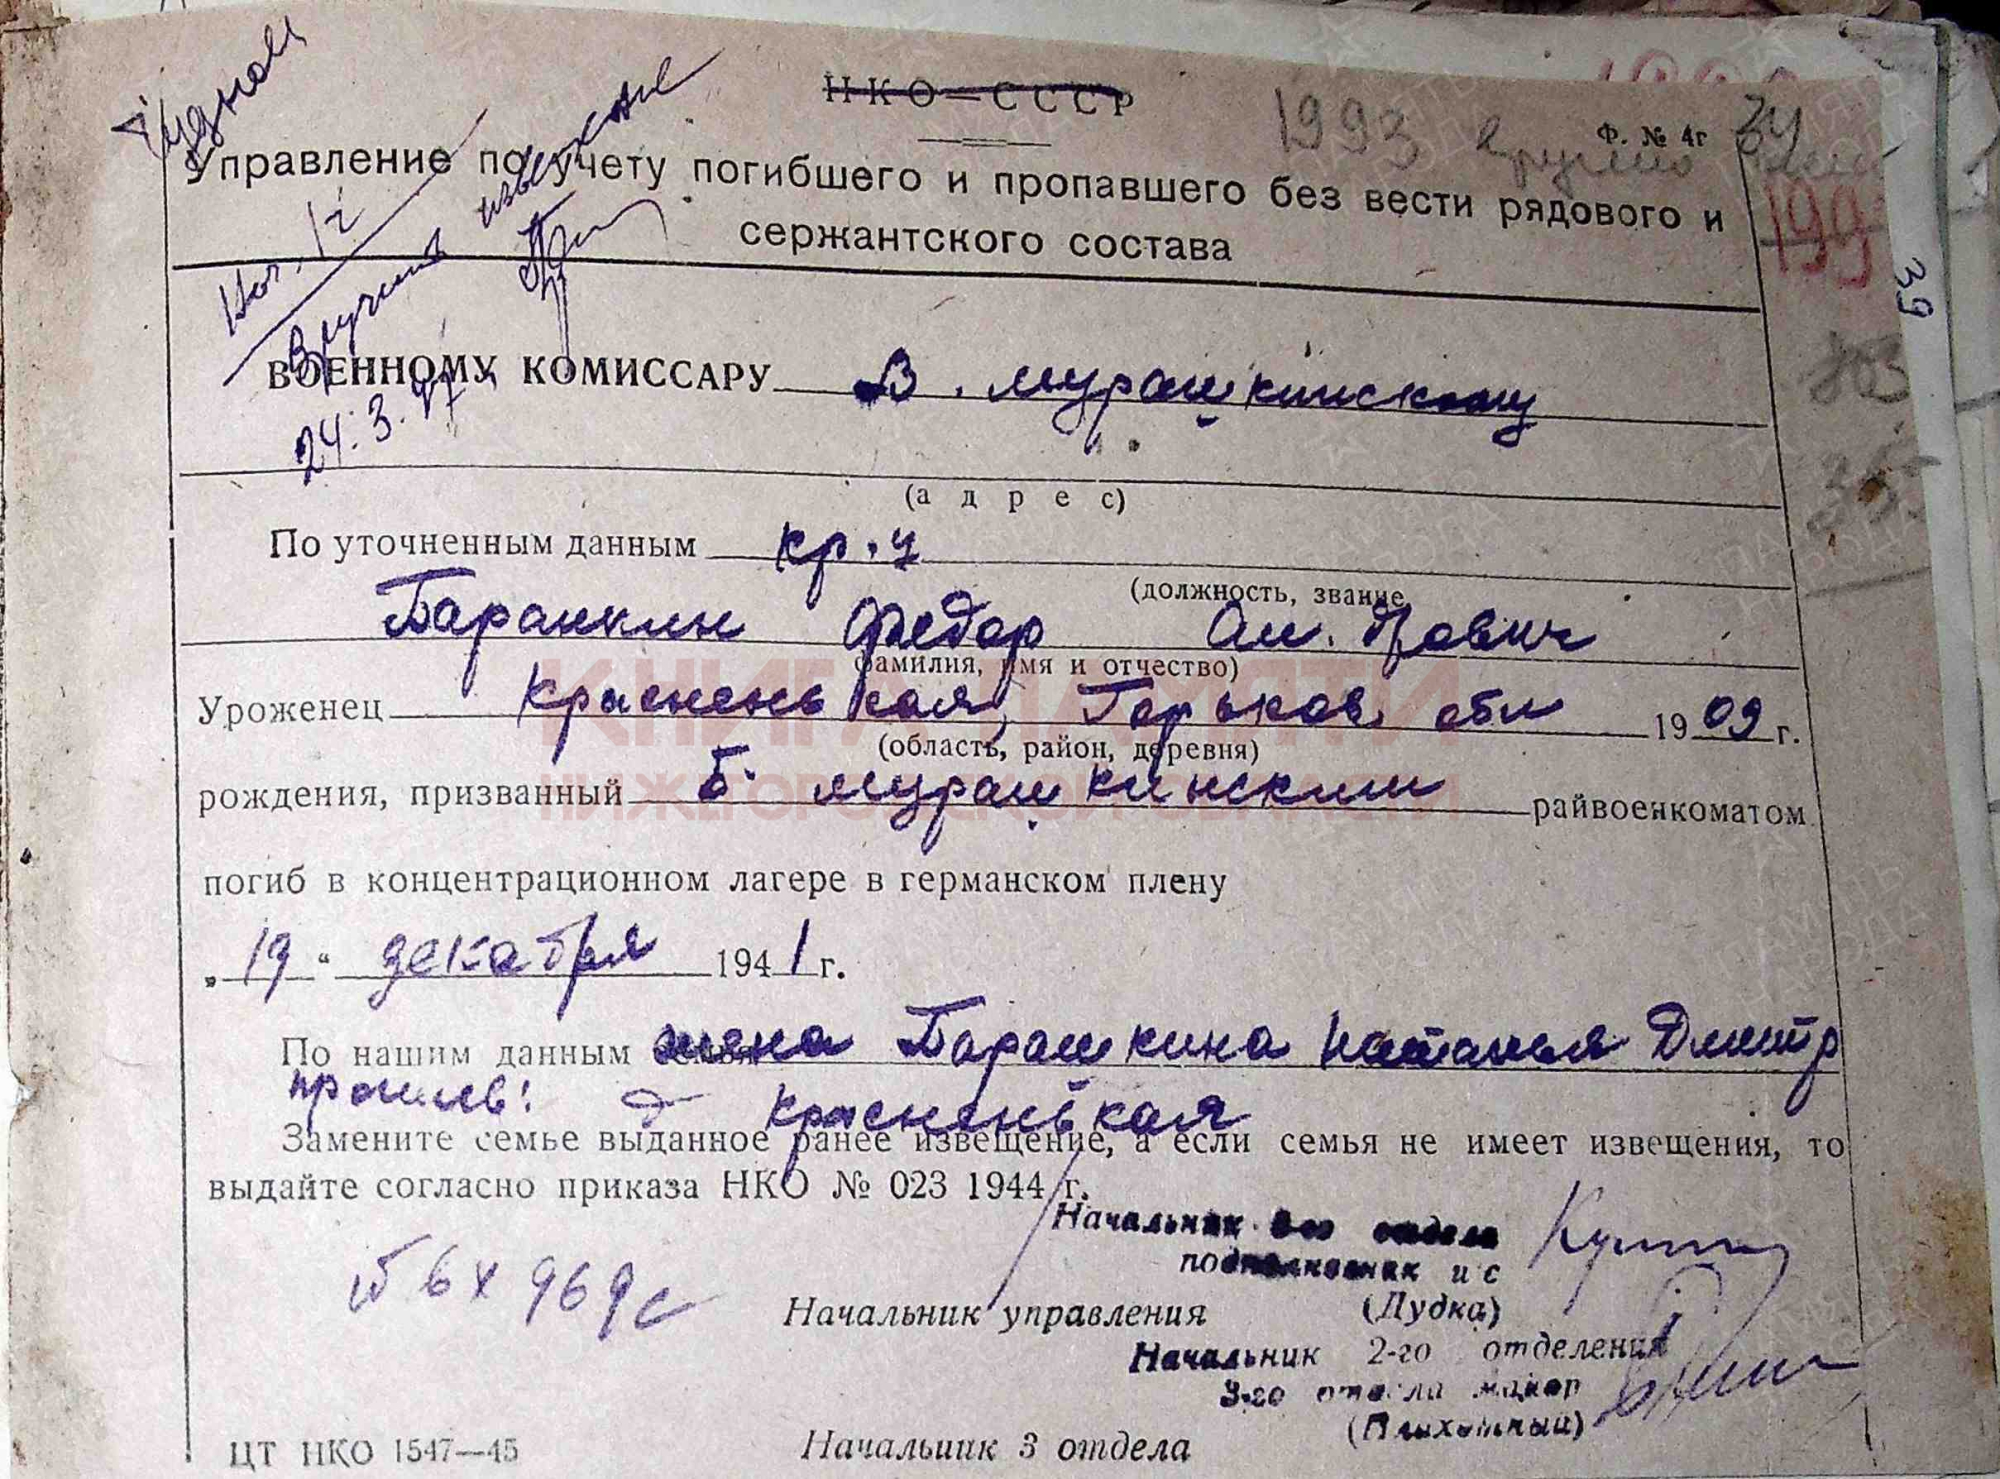 НКО — СССР
Ф. № 4г
1993
34
Управление по учету погибшего и пропавшего без вести рядового и
сержантского состава
Вручить извещение
24.3.47
39
ВОЕННОМУ КОМИССАРУ Б. Мурашкинскому
(адрес)
По уточненным данным кр-ц
(должность, звание,
Баранкин Федор Ан. дрович
фамилия, имя и отчество)
Уроженец Красненькая, Горьков. обл 1909 г.
(область, район, деревня)
рождения, призванный Б. Мурашкинским райвоенкоматом
погиб в концентрационном лагере в германском плену
„19“ декабря 1941 г.
По нашим данным жена Барашкина Наталья Дмитр
прожив: д Красненькая
Замените семье выданное ранее извещение, а если семья не имеет извещения, то
выдайте согласно приказа НКО № 023 1944 г.
Начальник 3-го отдела
подполковник и с
Начальник управления (Дудка)
Начальник 2-го отделения
3-го отдела майор
(Плихотный)
ЦТ НКО 1547—45
Начальник 3 отдела
КНИГА ПАМЯТИ
НИЖЕГОРОДСКОЙ ОБЛАСТИ